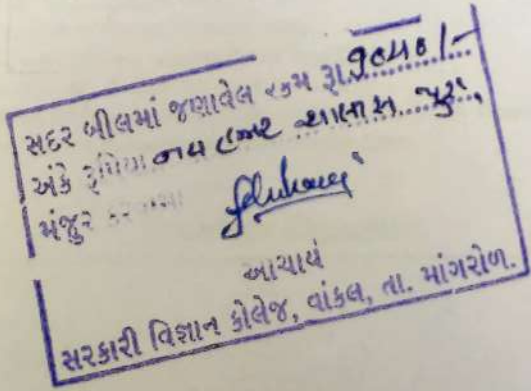 સદર બીલમાં જણાવેલ રકમ રૂા.
અંકે રૂપિયા હજાર પુરા.
મંજુર કરવામાં
આચાર્ય
સરકારી વિજ્ઞાન કોલેજ, વાંકલ, તા. માંગરોળ.